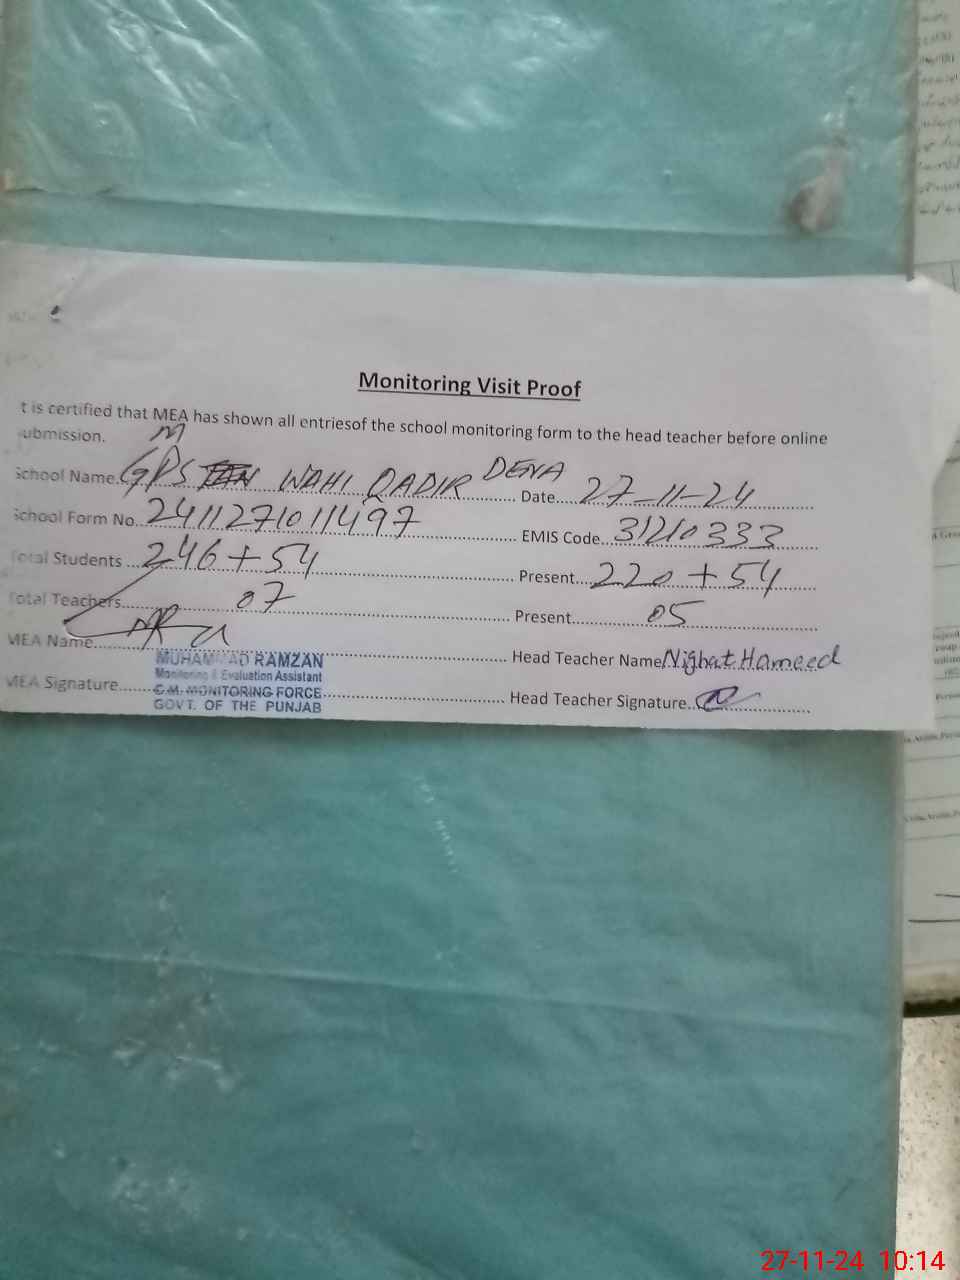 Monitoring Visit Proof
t is certified that MEA has shown all entriesof the school monitoring form to the head teacher before online
ubmission. M
School Name. GPS WAHI QADIR DENA Date 27-11-24
School Form No. 2411271011497 EMIS Code 31210333
Total Students 246+54 Present 220+54
Total Teachers 07 Present 05
MEA Name Head Teacher Name Nighat Hameed
MUHAMMAD RAMZAN
Monitoring & Evaluation Assistant
MEA Signature Head Teacher Signature
C.M. MONITORING FORCE
GOVT. OF THE PUNJAB
27-11-24 10:14